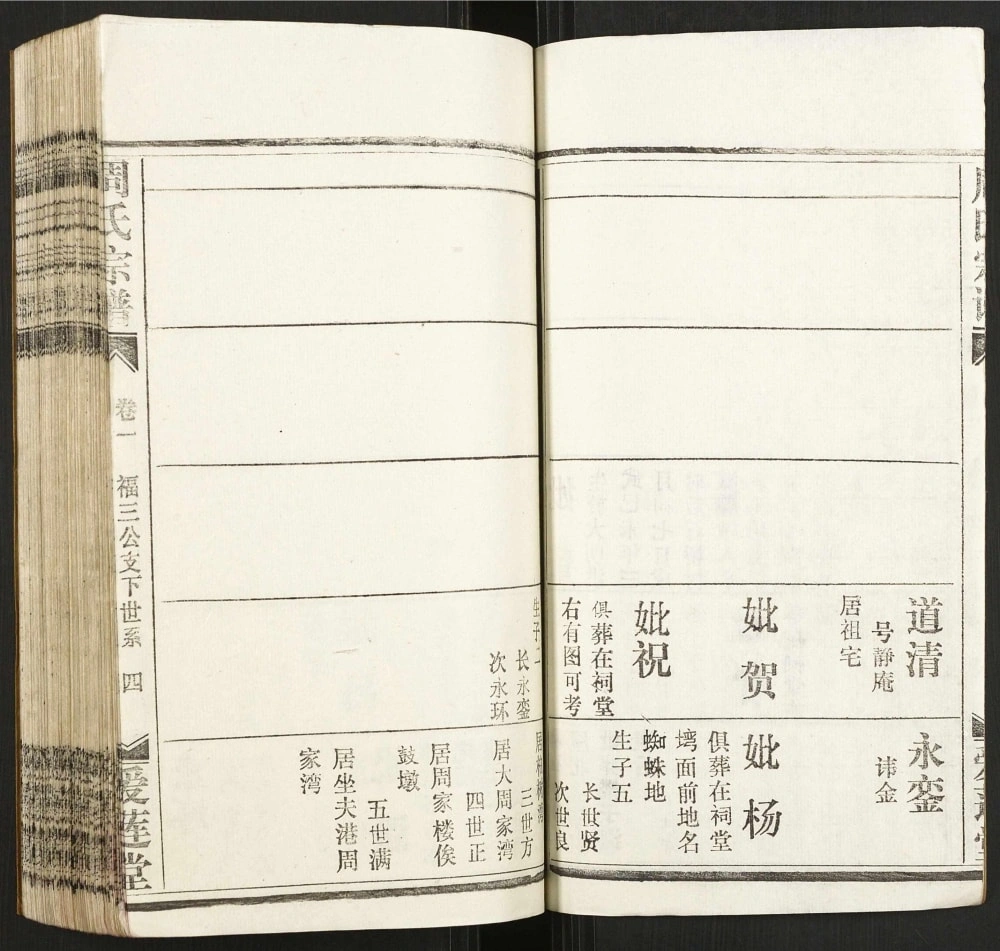 道清
号静庵
居祖宅
妣贺
妣祝
俱葬在祠堂
右有图可考
生子二
长永銮
次永环
永銮
讳金
妣杨
俱葬在祠堂
塆面前地名
蜘蛛地
生子五
长世贤
次世良
三世方
居大周家湾
四世正
居周家楼俟
鼓墩
五世满
居坐夫港周
家湾
周氏宗谱
卷一
福三公支下世系
四
爱莲堂